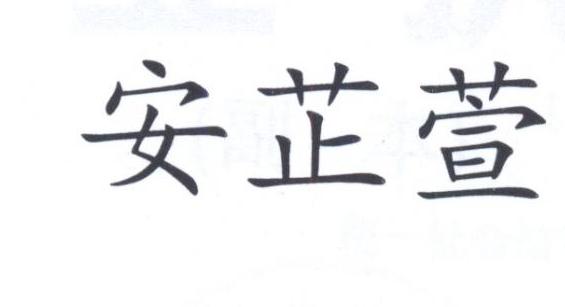 安芷萱